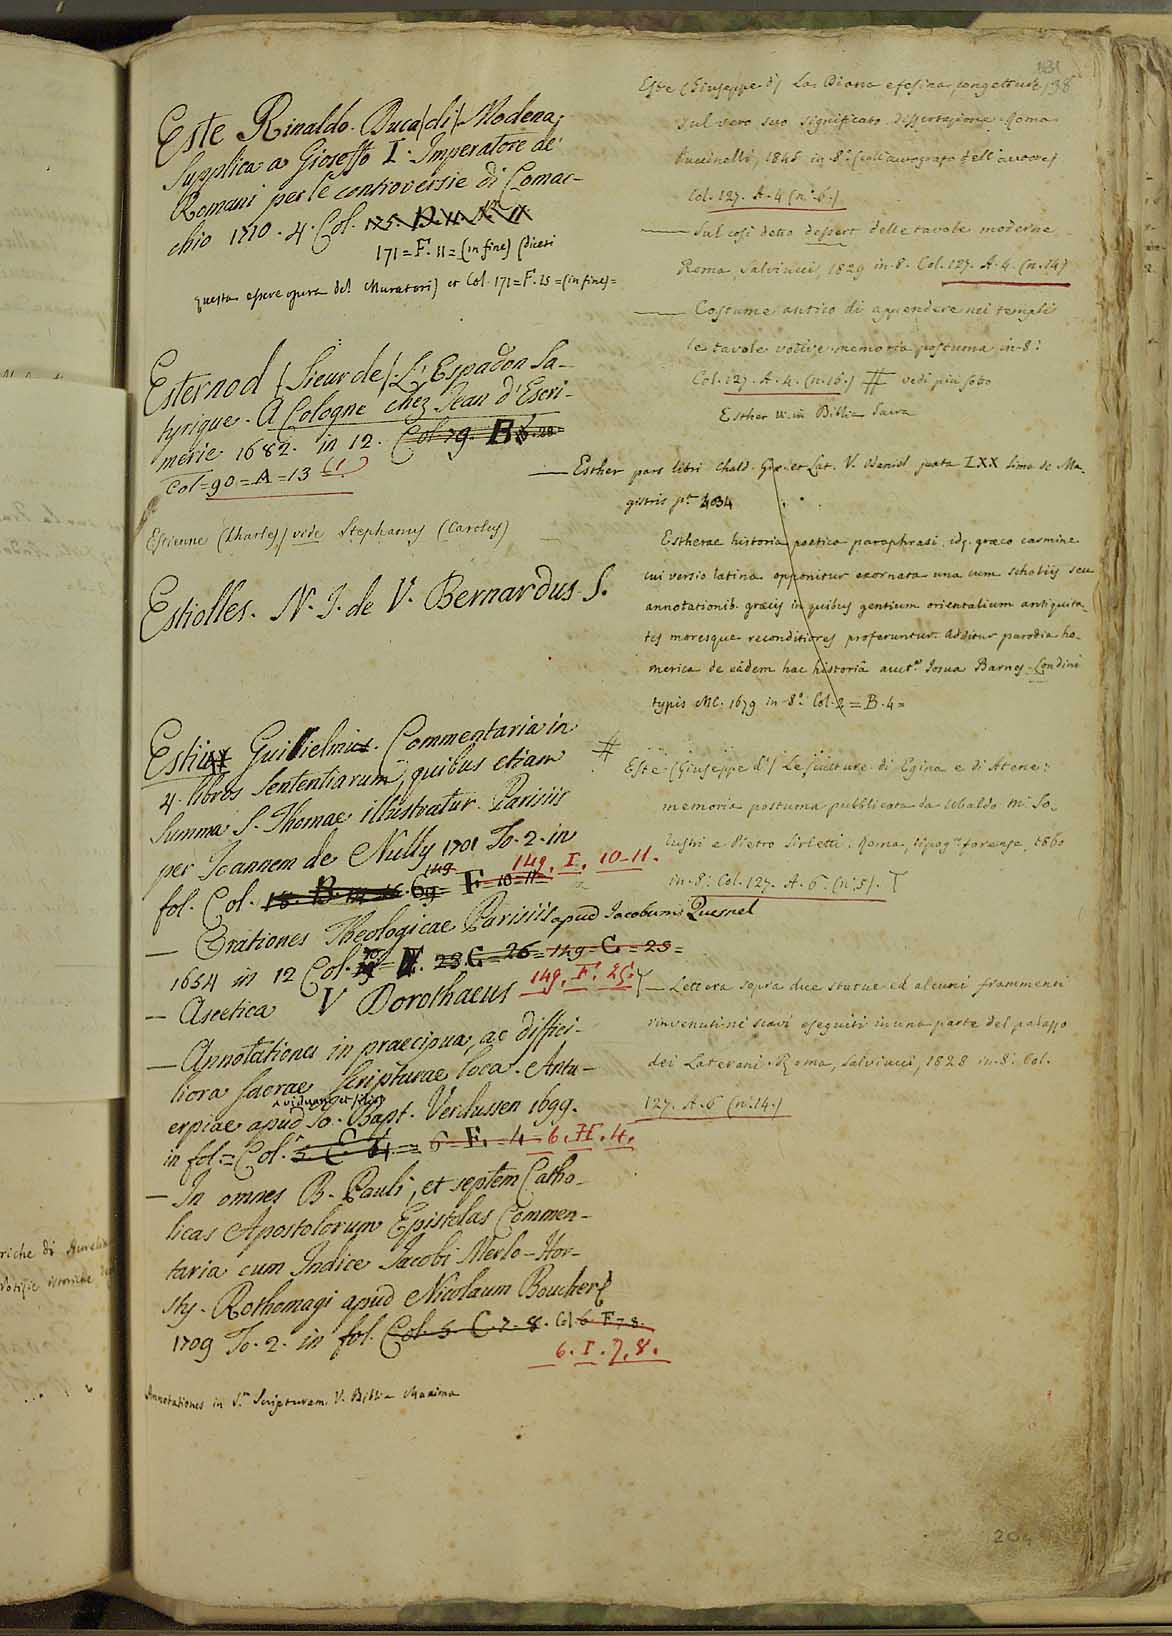 Este Rinaldo Duca (di) Modena,
Supplica a Gioseffo I. Imperatore de'
Romani per le controversie di Comac-
chio 1710. 4. Col.
171 = F. 11 = (in fine) (dicesi
questa essere opera del Muratori) et Col. 171 = F. 15 = (in fine) =
Esternod (Sieur de) L'Espadon Sa-
tyrique. A Cologne chez Jean d'Escri-
merie 1682. in 12. Col. 79. B.
Col = 90 = A = 13
Estienne (Charles) vide Stephanus (Carolus)
Estiolles. N. I. de V. Bernardus S.
Estius Guilielmus. Commentaria in
4. libros Sententiarum, quibus etiam
Summa S. Thomae illustratur. Parisiis
per Joannem de Nully 1701 To. 2. in
149. I. 10-11.
fol. Col. 69 = F = 10 = 11 =
— Orationes Theologicae Parisiis apud Jacobum Quesnel
1654 in 12 Col. 23. C. = 26 = 149 = C. = 25 =
149. F. 25.
— Ascetica V Dorothaeus
— Annotationes in praecipua, ac diffici-
liora sacrae Scripturae loca. Antu-
erpiae apud Jo. Bapt. Verdussen 1699.
in fol. = Col. 5 C = 6 = F. = 4 6. H. 4.
— In omnes B. Pauli, et septem Catho-
licas Apostolorum Epistolas Commen-
taria cum Indice Jacobi Merlo-Hor-
sty. Rothomagi apud Nicolaum Boucher
1709 To. 2. in fol. Col. 5 C. 7. 8. Col. 6 F 7 8.
6. I. 7. 8.
Annotationes in S.m Scripturam V. Biblia Maxima
131
138
Este (Giuseppe d') La Diana efesina, congetture
sul vero suo significato. Dissertazione. Roma
Puccinelli, 1845 in 8.° (coll'autografo dell'autore)
Col. 127. A. 4 (n.° 6.)
— Sul così detto dessert delle tavole moderne
Roma, Salviucci, 1829 in 8. Col. 127. A. 4. (n. 14)
— Costume antico di appendere nei templi
le tavole votive. memoria postuma in 8.°
Col. 127. A. 4. (n. 16.) # vedi più sotto
Esther v. in Biblia Sacra
— Esther pars libri Chald. Grae. et Lat. V. Daniel juxta LXX Simo de Ma-
gistris p.
Estherae historia poetica paraphrasi, idq. graeco carmine
cui versio latina opponitur exornata una cum scholiis seu
annotationib. graecis in quibus gentium orientalium antiquita-
tes moresque reconditiores proferuntur. Additur parodia ho-
merica de eâdem hac historiâ auct.e Josua Barnes. Londini
typis M.C. 1679 in 8.° Col. 2 = B. 4 =
# Este (Giuseppe d') Le sculture di Egina e di Atene:
memoria postuma pubblicata da Ubaldo M. So-
lustri e Pietro Sirletti. Roma, tipog.a forense, 1860
in 8.° Col. 127. A. 6. (n.° 5).
— Lettera sopra due statue ed alcuni frammenti
rinvenuti ne' scavi eseguiti in una parte del palazzo
dei Laterani. Roma, Salviucci, 1828 in 8.° Col.
127. A. 6 (n.° 14.)
204